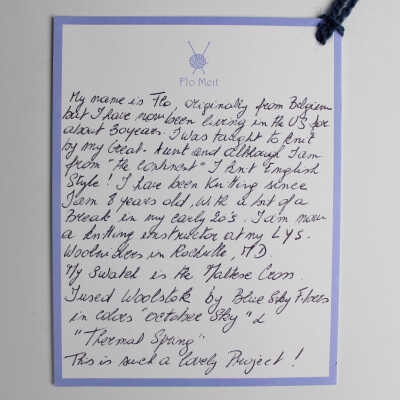 Flo Meit
My name is Flo, originally from Belgium
but I have now been living in the US for
about 30 years. I was taught to knit
by my Great-Aunt and although I am
from "the continent" I knit English
Style! I have been knitting since
I am 8 years old, with a bit of a
Break in my early 20's. I am now
a knitting instructor at my LYS.
in Rockville, MD.
My Swatch is the Maltese Cross.
I used Woolstok by Blue Sky Fibers
in colors "october Sky" &
"Thermal Spring"
This is such a lovely Project!